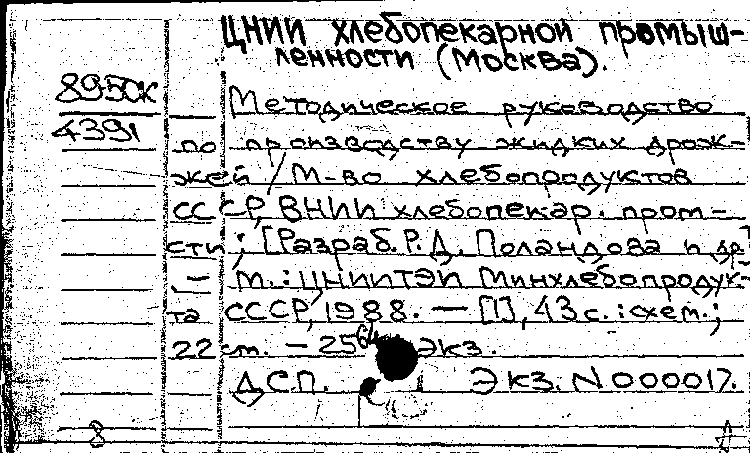 ЦНИИ хлебопекарной промыш-
ленности (Москва).
8950К
4391
Методическое руководство
по производству жидких дрож-
жей / М-во хлебопродуктов
СССР, ВНИИ хлебопекар. пром-
сти; [Разраб. Р.Д. Поландова и др.]
. — М.: ЦНИИТЭИ Минхлебопродук-
та СССР, 1988. — [1], 43 с. : схем.;
22 см. — 256 экз.
ДСП. Экз. N 000017.
8